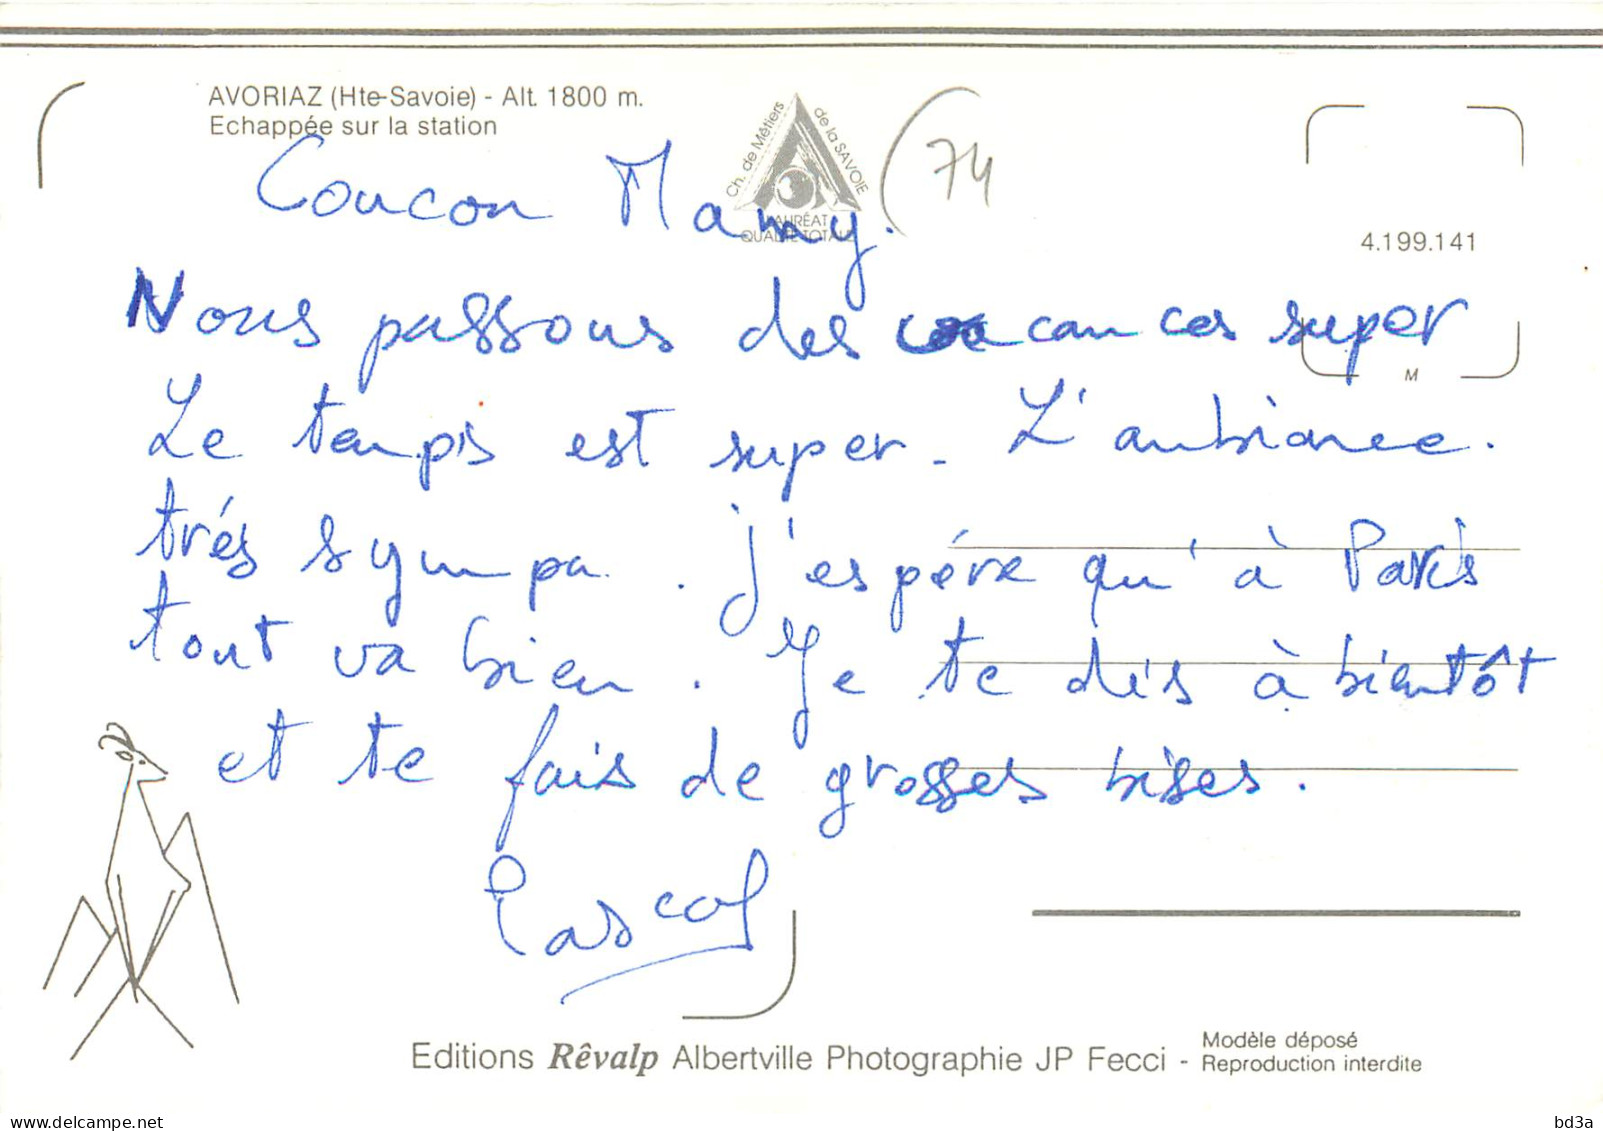 AVORIAZ (Hte-Savoie) - Alt. 1800 m.
Echappée sur la station
Ch. de Métiers de la SAVOIE
LAURÉAT
QUALITÉ TOTALE
74
4.199.141
M
Coucou Mamy.
Nous passons des cances super
Le temps est super. L'ambiance.
trés sympa. j'espére qu'à Paris
tout va bien. Je te dis à bientôt
et te fais de grosses bises.
Pascal
Editions Rêvalp Albertville Photographie JP Fecci -
Modèle déposé
Reproduction interdite
delcampe.net
bd3a